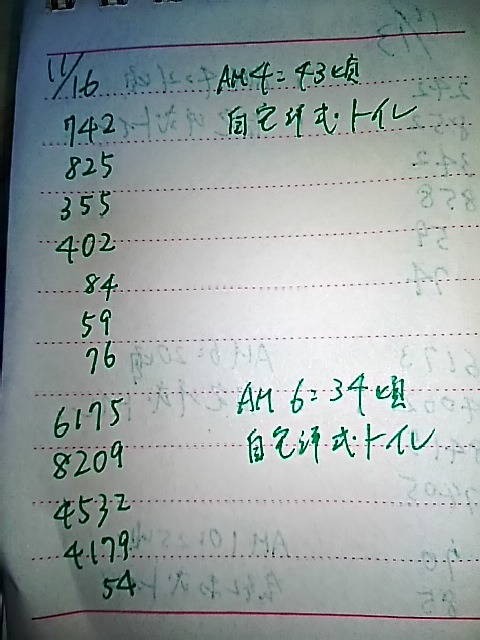 11/16 AM4:43頃
742 自宅洋式トイレ
825
355
402
84
59
76
6175 AM 6:34頃
8209 自宅洋式トイレ
4532
4179
54